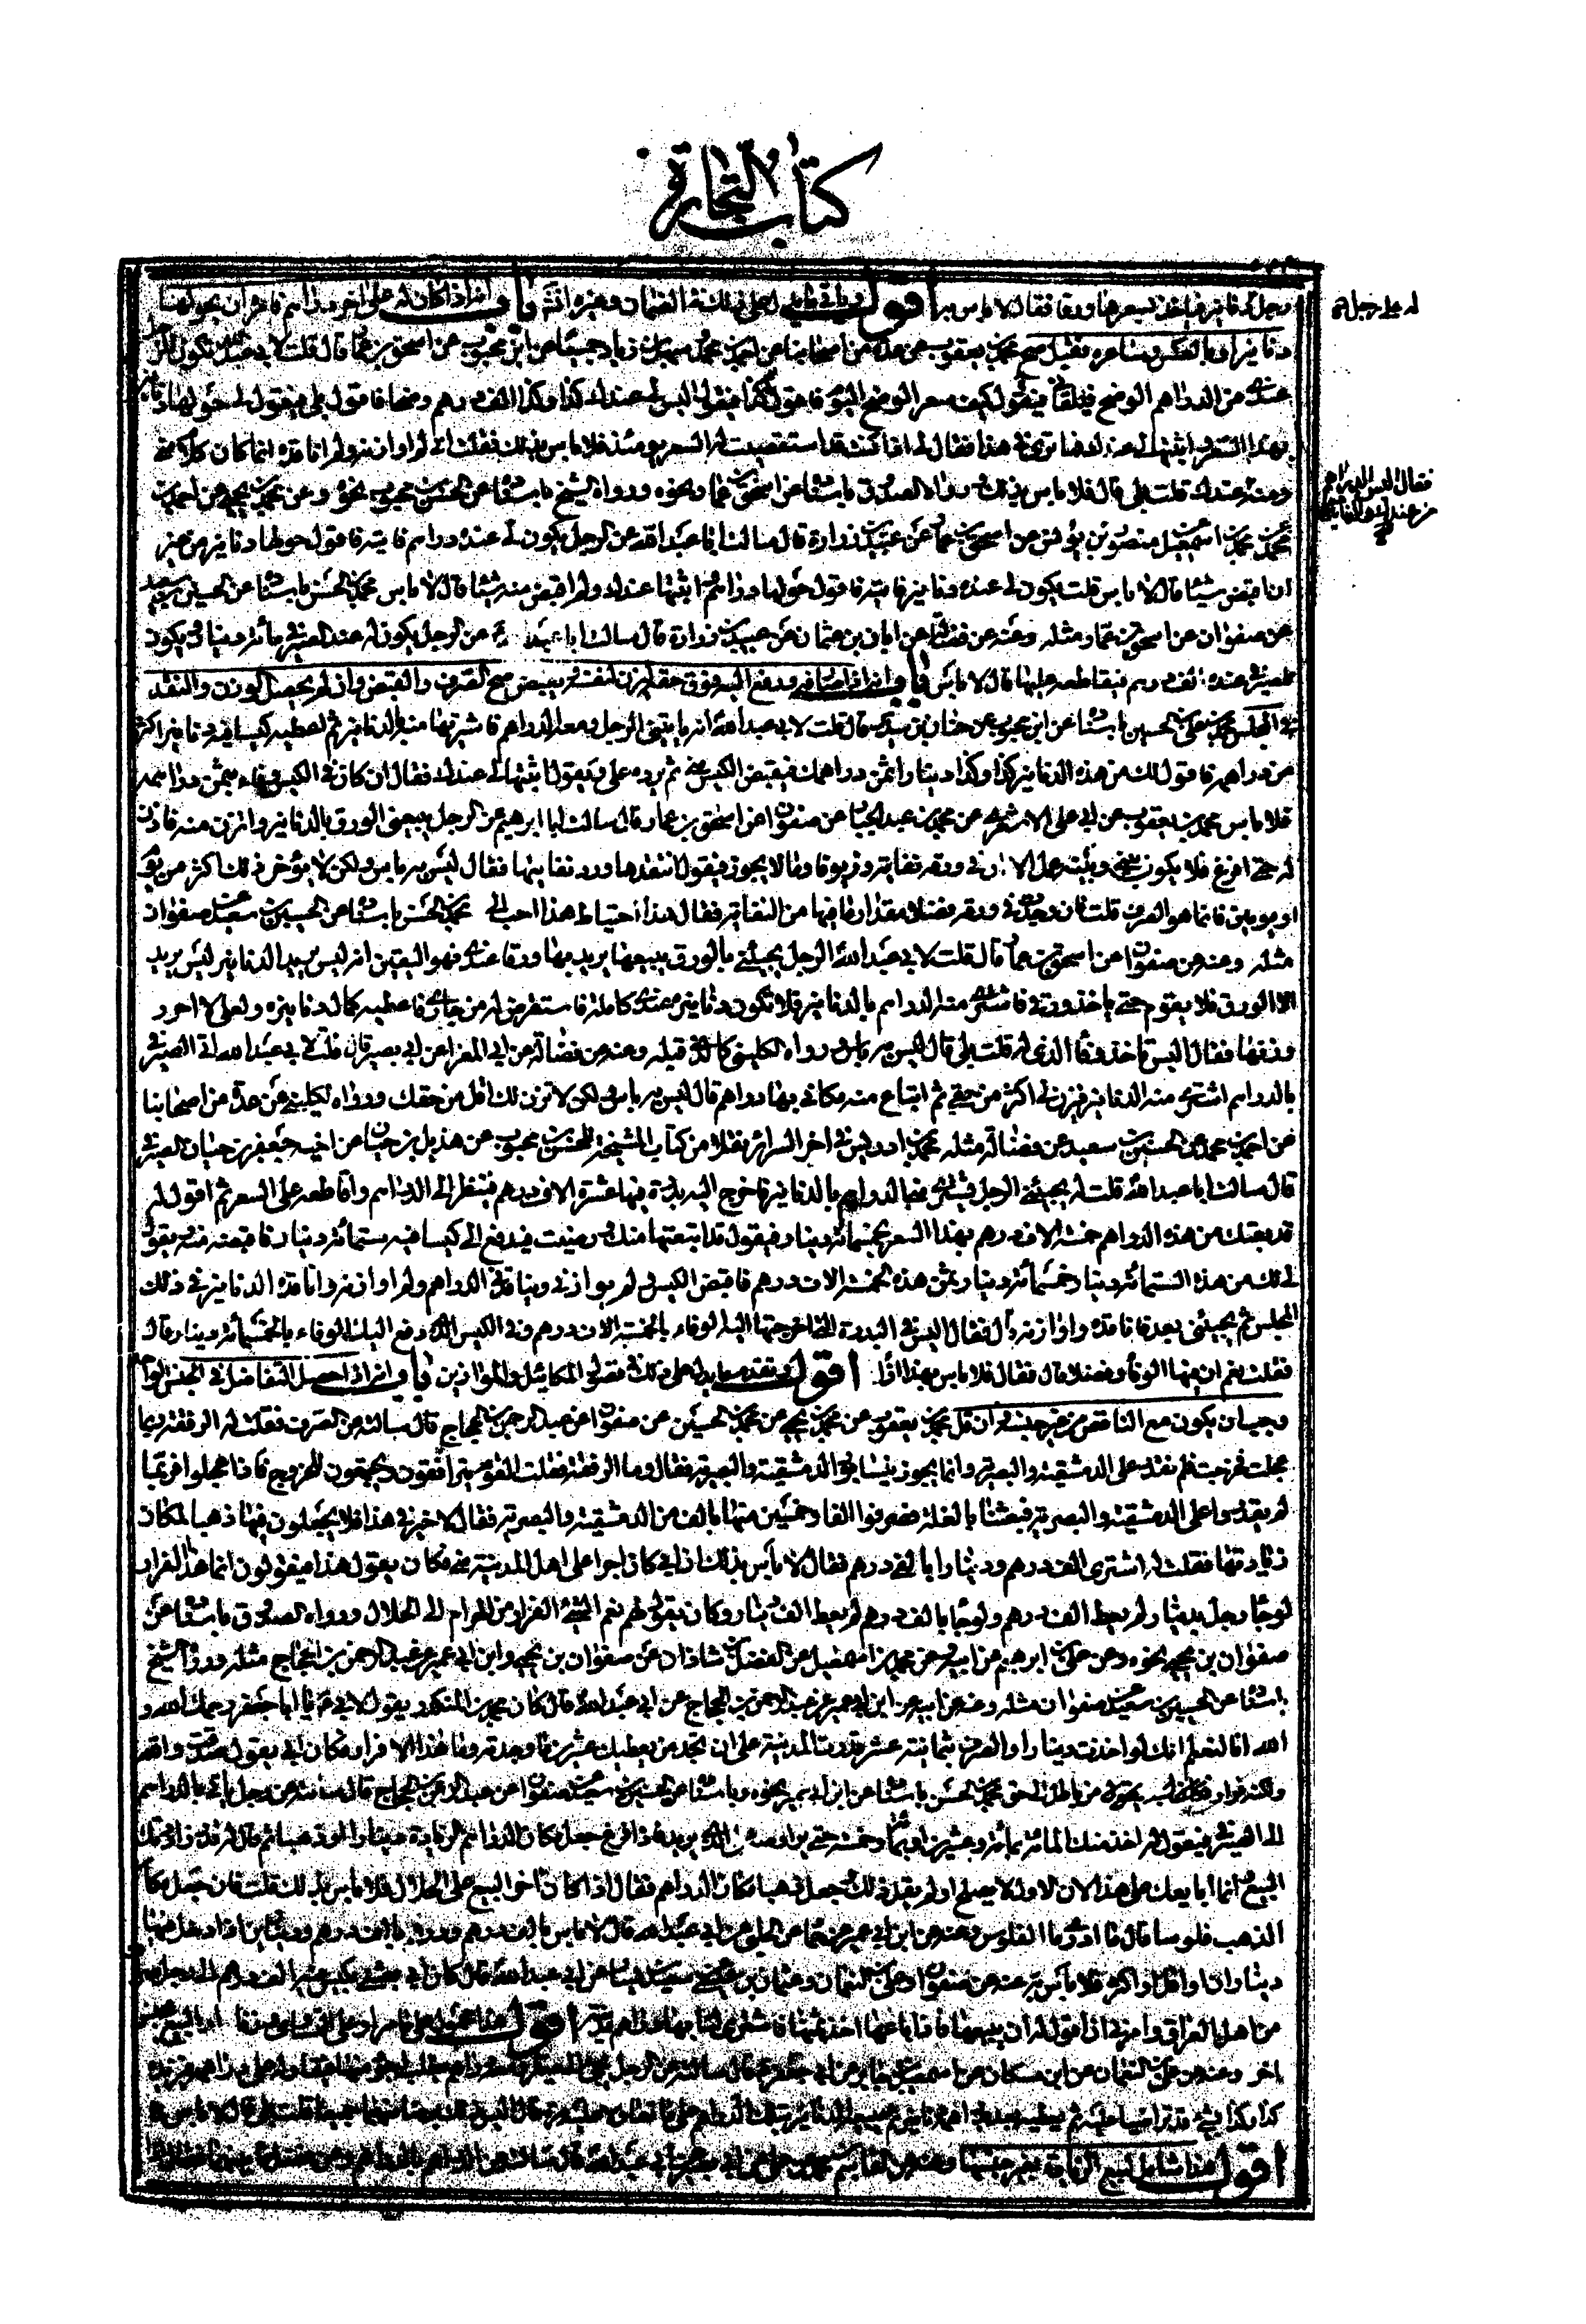 كتاب التجارة
له على رجل
رجل دنانير فيأخذ بسعرها ورقا فقال لا بأس به أقول ويأتي ما يدل على ذلك في الضمان وغيره انش باب انه اذا كان له على اخر دراهم فامره ان يحولها
دنانير او بالعكس وساعره فقبل صح محمد بن يعقوب عن عدة من اصحابنا عن احمد بن محمد وسهل بن زياد جميعا عن ابن محبوب عن اسحق بن عمار قال قلت لابي عبد الله تكون للرجل
عندي من الدراهم الوضح فيلقاني فيقول كيف سعر الوضح اليوم فاقول كذا فيقول اليس لي عندك كذا وكذا الف درهم وضحا فاقول بلى فيقول لي حولها دنانير
بهذا السعر واثبتها لي عندك فما ترى في هذا فقال لي اذا كنت قد استقصيت له السعر يومئذ فلا بأس بذلك فقلت اني لم اوازنه ولم اناقده انما كان كلام مني
فقال اليس الدراهم
من عندك والدنانير
ومنه عندك قلت بلى قال فلا بأس بذلك ورواه الصدوق باسناده عن اسحق بن عمار نحوه ورواه الشيخ باسناده عن الحسن بن محبوب نحوه وعن محمد بن يحيى عن احمد بن
محمد عن محمد بن اسمعيل عن منصور بن يونس عن اسحق بن عمار عن عبيد بن زرارة قال سألت ابا عبد الله عن الرجل يكون لي عنده دراهم فاتيه فاقول حولها دنانير من غير
ان اقبض شيئا قال لا بأس قلت يكون لي عنده دنانير فاتيه فاقول حولها دراهم واثبتها عندك ولم اقبض منه شيئا قال لا بأس محمد بن الحسن باسناده عن الحسين بن سعيد
عن صفوان عن اسحق بن عمار مثله وعنه عن فضالة عن ابان بن عثمان عن عبيد بن زرارة قال سألت ابا عبد الله عن الرجل يكون له عند الصيرفي مائة دينار ويكون
للصيرفي عنده الف درهم فيقاطعه عليها قال لا بأس باب انه اذا صارفه ودفع اليه فوق حقه ليزن لنفسه ويقبض صح الصرف والقبض وان لم يحصل الوزن والنقد
في المجلس محمد بن علي بن الحسين باسناده عن ابن محبوب عن حنان بن سدير قال قلت لابي عبد الله انه يأتيني الرجل ومعه الدراهم فاشتريها منه بالدنانير ثم اعطيه كيسا فيه دنانير اكثر
من دراهمه فاقول لك من هذه الدنانير كذا وكذا دينارا ثمن دراهمك فيقبض الكيس مني ثم يرده علي ويقول اثبتها لي عندك فقال ان كان في الكيس وفاء بثمن دراهمه
فلا بأس محمد بن يعقوب عن ابي علي الاشعري عن محمد بن عبد الجبار عن صفوان عن اسحق بن عمار قال سألت ابا ابراهيم عن الرجل يبيعني الورق بالدنانير واتزن منه فازن
له حتى افرغ فلا يكون بيني وبينه عمل الا ان في ورقه نفاية وزيوفا وما لا يجوز فيقول انتقدها ورد نفايتها فقال ليس به بأس ولكن لا يؤخر ذلك اكثر من يوم
او يومين فانما هو الصرف قلت فان وجدت في ورقه فضلا مقدار ما فيها من النفاية فقال هذا احتياط هذا احب الي محمد بن الحسن باسناده عن الحسين بن سعيد عن صفوان
مثله وعنه عن صفوان عن اسحق بن عمار قال قلت لابي عبد الله الرجل يجيئني بالورق يبيعها يريد بها ورقا عندي فهو اليقين انه ليس يريد الدنانير ليس يريد
الا الورق فلا يقوم حتى يأخذ ورقي فاشتري منه الدراهم بالدنانير فلا تكون دنانيره عندي كاملة فاستقرض له من جاري فاعطيه كمال دنانيره ولعلي لا احرز
وزنها فقال اليس تأخذ وفاء الذي له قلت بلى قال ليس به بأس ورواه الكليني كالذي قبله وعنه عن فضالة عن ابي المغرا عن ابي بصير قال قلت لابي عبد الله اتي الصيرفي
بالدراهم اشتري منه الدنانير فيزن لي اكثر من حقي ثم ابتاع منه مكاني بها دراهم قال ليس به بأس ولكن لا تزن لك اقل من حقك ورواه الكليني عن عدة من اصحابنا
عن احمد بن محمد عن الحسين بن سعيد عن فضالة مثله محمد بن ادريس في اخر السرائر نقلا من كتاب المشيخة للحسن بن محبوب عن هذيل بن حيان عن اخيه جعفر بن حيان الصيرفي
قال سألت ابا عبد الله قلت له يجيئني الرجل يشتري مني الدراهم بالدنانير فاخرج اليه بدرة فيها عشرة الاف درهم فينظر الى الدراهم واقاطعه على السعر ثم اقول له
قد بعتك من هذه الدراهم خمسة الاف درهم بهذا السعر بخمسمائة دينار فيقول قد ابتعتها منك ورضيت فيدفع الي كيسا فيه ستمائة دينار فاقبضه منه ويقول
لي لك من هذه الستمائة دينار خمسمائة دينار ثمن هذه الخمسة الاف درهم فاقبض الكيس ولم يوازني ويناقدني الدراهم ولم اوازنه واناقده الدنانير في ذلك
المجلس ثم يجيئني بعد فاناقده واوازنه قال فقال اليس في البدرة التي اخرجتها اليه الوفاء بالخمسة الاف درهم وفي الكيس الذي دفع اليك الوفاء بالخمسمائة دينار قال
فقلت نعم ان فيها الوفاء وفضلا قال فقال فلا بأس بهذا اذا أقول وتقدم ما يدل على ذلك في فضولي المكائيل والموازين باب انه اذا حصل التفاضل في الجنس الواحد
وجب ان يكون مع الناقص من غير جنسه وان قل محمد بن يعقوب عن محمد بن يحيى عن محمد بن الحسين عن صفوان عن عبد الرحمن بن الحجاج قال سألته عن الصرف فقلت له الرفقة ربما
عجلت فخرجت فلم نقدر على الدمشقية والبصرية وانما يجوز بنيسابور الدمشقية والبصرية فقال وما الرفقة فقلت القوم يترافقون ويجتمعون للخروج فاذا عجلوا فربما
لم يقدروا على الدمشقية والبصرية فبعثنا بالغلة فصرفوا الفا وخمسين منها بالف من الدمشقية والبصرية فقال لا خير في هذا افلا يجعلون فيها ذهبا لمكان
زيادتها فقلت له اشتري الف درهم ودينارا بالفي درهم فقال لا بأس بذلك ان ابي كان اجرا على اهل المدينة مني فكان يقول هذا فيقولون انما هذا الفرار
لو جاء رجل بدينار لم يعط الف درهم ولو جاء بالف درهم لم يعط الف دينار وكان يقول لهم نعم الشيء الفرار من الحرام الى الحلال ورواه الصدوق باسناده عن
صفوان بن يحيى نحوه وعن علي بن ابراهيم عن ابيه وعن محمد بن اسمعيل عن الفضل بن شاذان عن صفوان بن يحيى وابن ابي عمير عن عبد الرحمن بن الحجاج مثله ورواه الشيخ
باسناده عن الحسين بن سعيد عن صفوان مثله وعنه عن ابيه عن ابن ابي عمير عن عبد الرحمن بن الحجاج عن ابي عبد الله قال كان محمد بن المنكدر يقول لابي يا ابا جعفر رحمك الله و
الله انا لنعلم انك لو اخذت دينارا والصرف بثمانية عشر فدرت المدينة على ان تجد من يعطيك عشرين ما وجدته وما هذا الا فرار وكان ابي يقول صدقت والله
ولكنه فرار من باطل الى حق محمد بن الحسن باسناده عن ابن ابي عمير نحوه وباسناده عن الحسين بن سعيد عن صفوان عن عبد الرحمن بن الحجاج قال سألته عن رجل يأتي بالدراهم
الى الصيرفي فيقول له اخذ منك المائة بمائة وعشرين او بمائة وخمسة حتى يراوضه على الذي يريد فاذا فرغ جعل مكان الدراهم الزيادة دينارا او ذهبا ثم قال له قد زاددتك
البيع وانما ابايعك على هذا لان الاول لا يصلح او لم يقل ذلك وجعل ذهبا مكان الدراهم فقال اذا كان اخر البيع على الحلال فلا بأس بذلك قلت فان جعل مكان
الذهب فلوسا قال ما ادري ما الفلوس وعنه عن ابن ابي عمير عن حماد عن الحلبي عن ابي عبد الله قال لا بأس بالف درهم ودرهم بالف درهم ودينارين اذا دخل فيها
ديناران او اقل او اكثر فلا بأس به وعنه عن صفوان وعلي بن النعمان وعثمان بن عيسى عن سعيد بن يسار عن ابي عبد الله قال كان ابي بعثني بكيس فيه الف درهم الى رجل صراف
من اهل العراق وامرني ان اقول له ان يبيعها فاذا باعها اخذ ثمنها فاشترى لنا بها دراهم مدنية أقول
اخر وعنه عن علي بن النعمان عن ابن مسكان عن اسمعيل بن جابر عن ابي جعفر قال سألته عن الرجل يجيء الى الصيرفي ومعه دراهم يطلب اجود منها فيقاوله على دراهمه فيزيده
كذا وكذا بشيء قد تراضيا عليه ثم يعطيه بعد بدراهمه دنانير ثم يبيعه الدنانير بتلك الدراهم على ما تقاولا عليه قال اليس ذلك برضا منهما جميعا قلت بلى قال لا بأس
أقول هذا شامل لبيع الزيادة بغير جنسها وعنه عن القاسم بن محمد عن علي عن ابي بصير عن ابي عبد الله قال سألته عن الدراهم بالدراهم وعن فضل ما بينهما